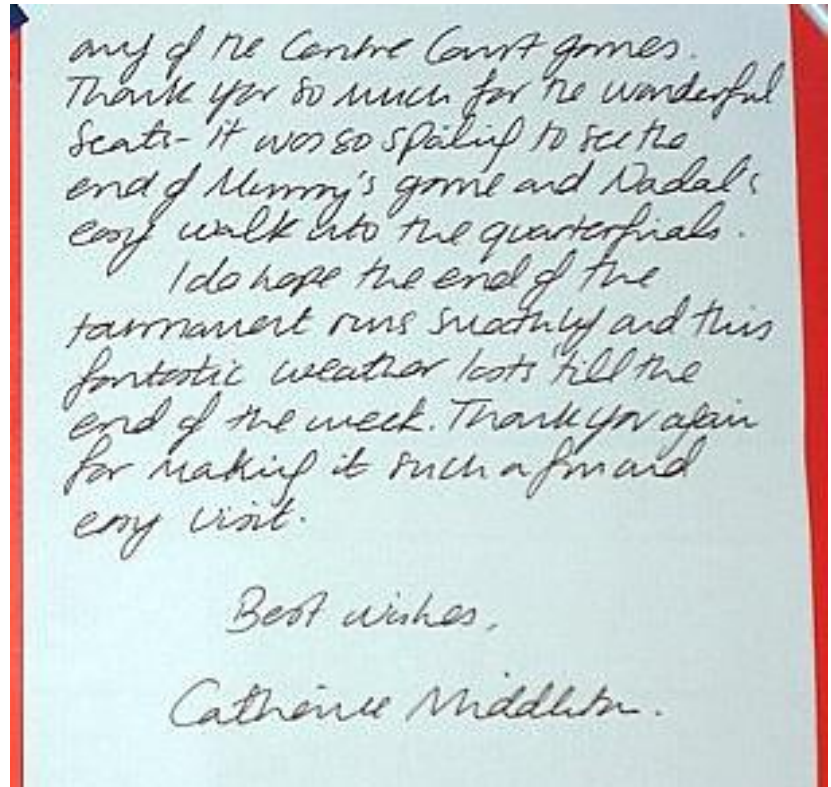 any of the Centre Court games.
Thank you so much for the wonderful
seats- it was so spoiling to see the
end of Murray's game and Nadal's
easy walk into the quarterfinals.
I do hope the end of the
tournament runs smoothly and this
fantastic weather lasts 'till the
end of the week. Thank you again
for making it such a fun and
easy visit.
Best wishes,
Catherine Middleton.